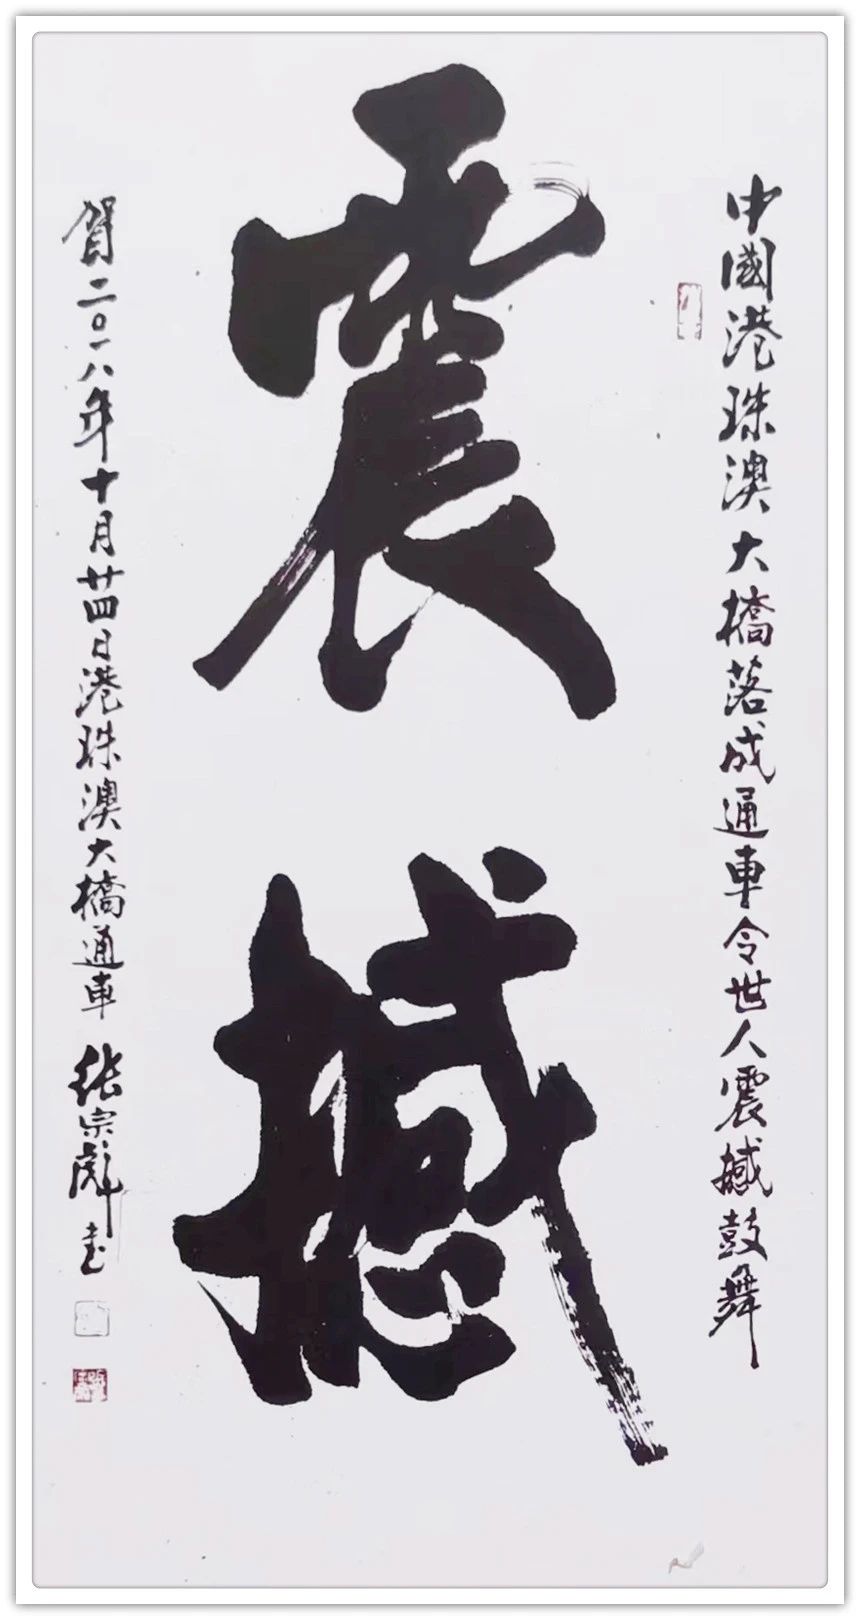 中國港珠澳大橋落成通車令世人震撼鼓舞
震撼
賀二〇一八年十月廿四日港珠澳大橋通車 張宗彪书